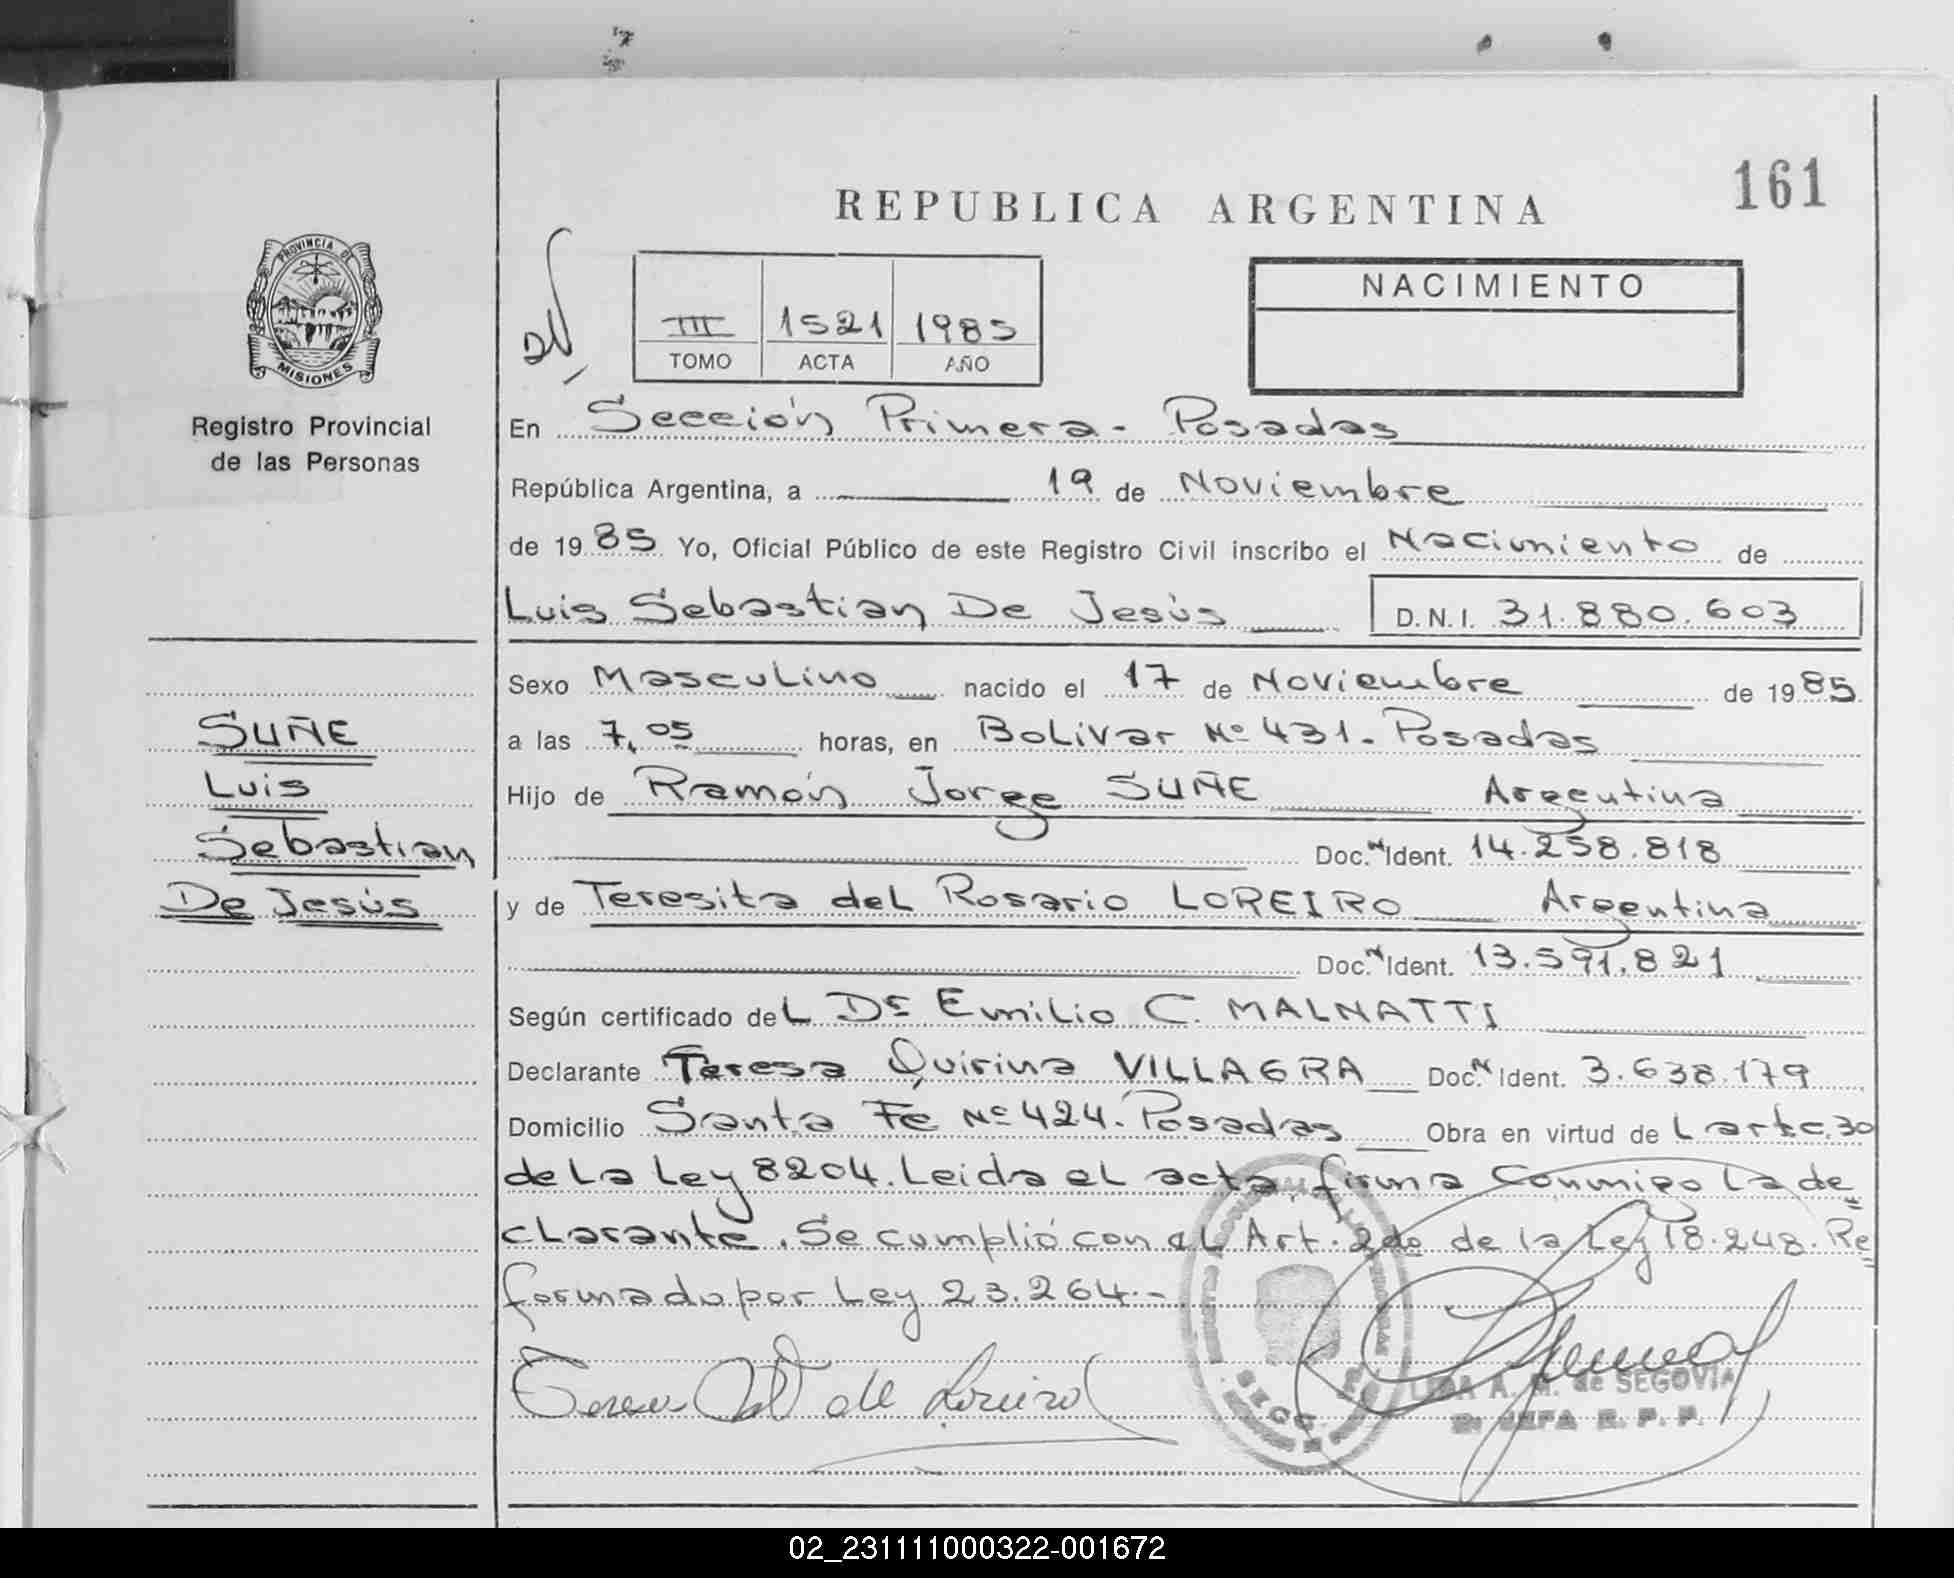 161
REPUBLICA ARGENTINA
PROVINCIA DE
MISIONES
Registro Provincial
de las Personas
NACIMIENTO
III 1521 1985
TOMO ACTA AÑO
En Sección Primera - Posadas
República Argentina, a 19 de Noviembre
de 1985 Yo, Oficial Público de este Registro Civil inscribo el Nacimiento de
Luis Sebastian De Jesús D.N.I. 31.880.603
Sexo Masculino nacido el 17 de Noviembre de 1985
SUÑE
Luis
Sebastian
De Jesús
a las 7,05 horas, en Bolivar Nº 431. Posadas
Hijo de Ramón Jorge SUÑE Argentina
Doc. Ident. 14.258.818
y de Teresita del Rosario LOREIRO Argentina
Doc. Ident. 13.591.821
Según certificado del Dr Emilio C. MALNATTI
Declarante Teresa Quirina VILLAGRA Doc. Ident. 3.638.179
Domicilio Santa Fe Nº 424. Posadas Obra en virtud de L artc. 30
de La Ley 8204. Leida el acta, firma conmigo la de
clarante. Se cumplió con el Art. 2do de la Ley 18.248. Re
formado por Ley 23.264.-
de Loreiro
LIDA A. M. de SEGOVIA
JEFA R. P. P.
02_231111000322-001672